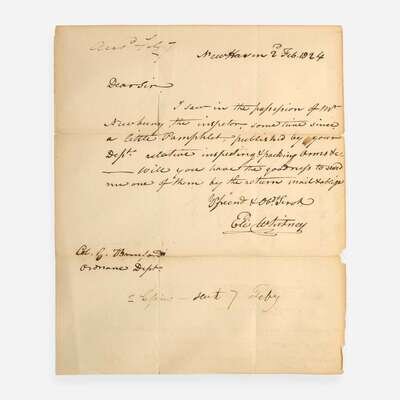 Rec.d Feby 7
New Haven 2d Feb. 1824
Dear Sir
I saw in the possession of Mr
Newbury the inspector, some time since
a little Pamphlet, published by your
Dept. relative inspecting & packing Arms &c
— Will you have the goodness to send
me one of them by the return mail & oblige
Yr friend & Obt Servt
Eli Whitney
Col. G. Bomford
Ordnance Dept.
2 Copies — sent 7 Feby